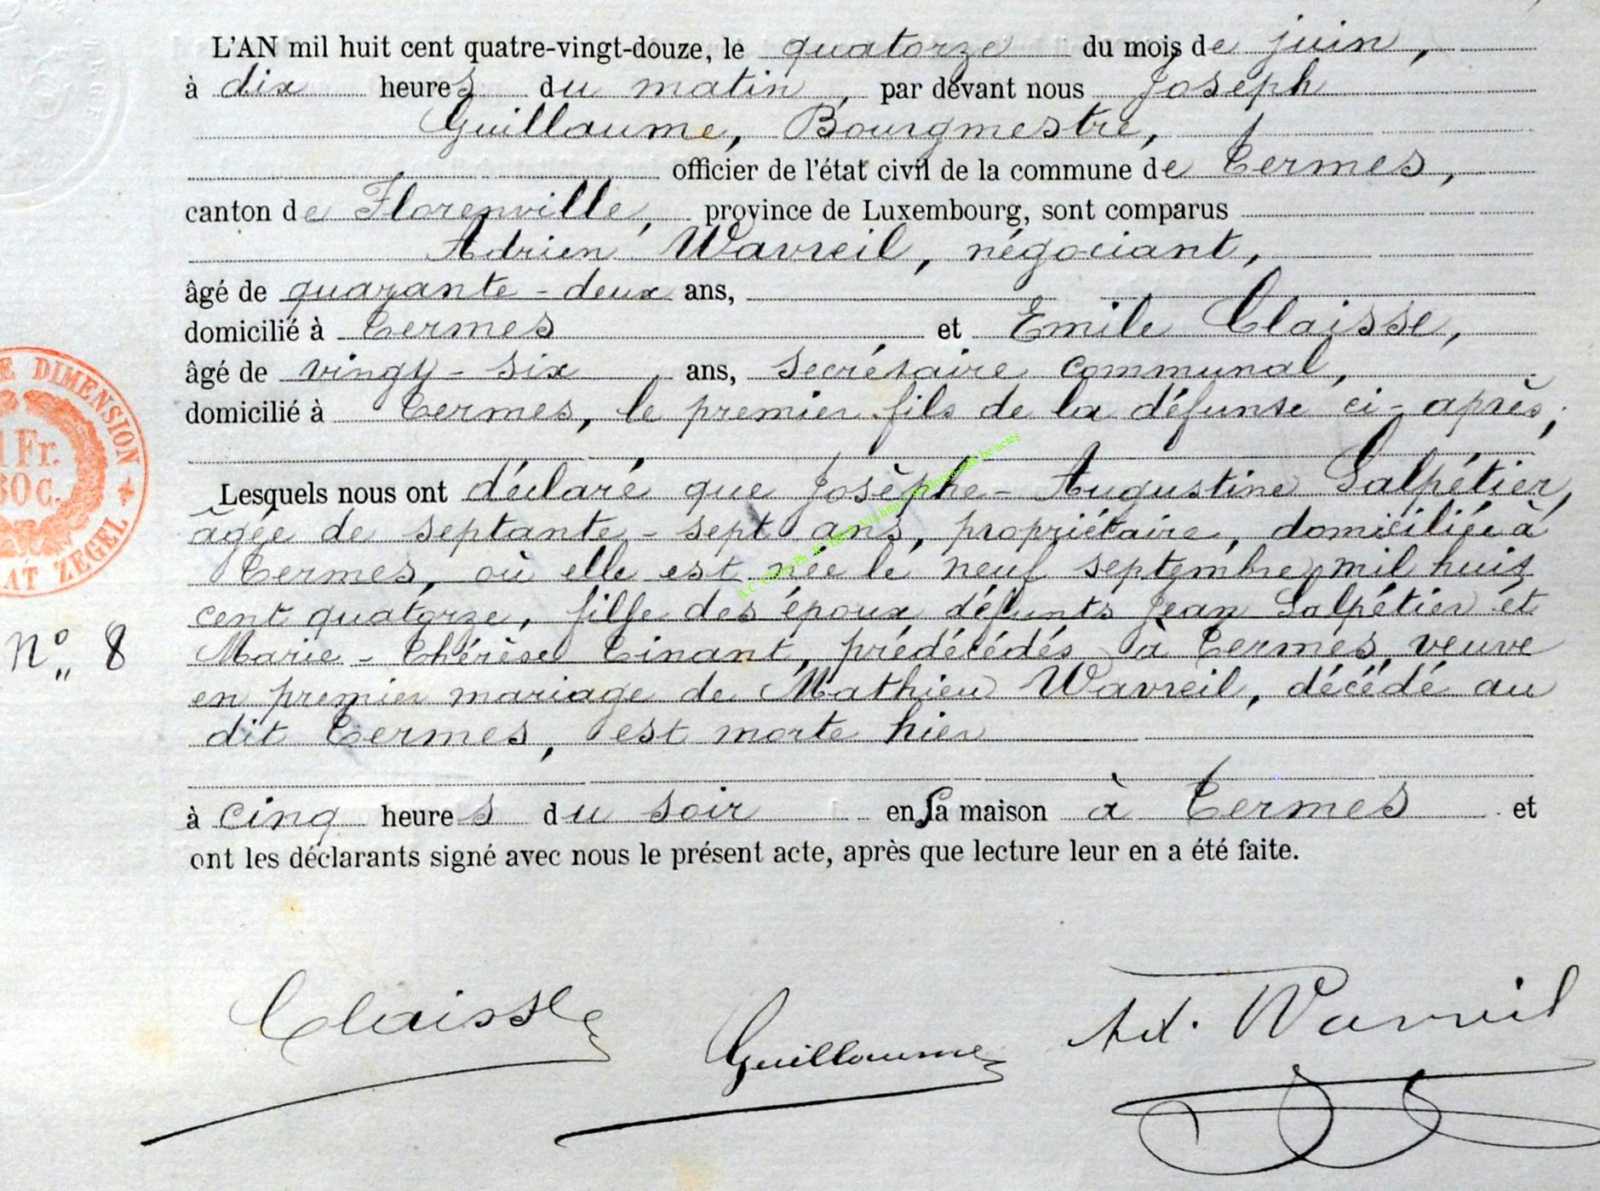 L'AN mil huit cent quatre-vingt-douze, le quatorze du mois de juin,
à dix heures du matin, par devant nous Joseph
Guillaume, Bourgmestre,
officier de l'état civil de la commune de Termes,
canton de Florenville, province de Luxembourg, sont comparus
Adrien Wavreil, négociant,
âgé de quarante-deux ans,
domicilié à Termes et Emile Claisse,
âgé de vingt-six ans, secrétaire communal,
domicilié à Termes, le premier fils de la défunte ci-après;
Lesquels nous ont déclaré que Josèphe-Augustine Salpétier,
âgée de septante-sept ans, propriétaire, domiciliée à
Termes, où elle est née le neuf septembre mil huit
cent quatorze, fille des époux défunts Jean Salpétier et
Marie-Thérèse Tinant, prédécédés à Termes, veuve
en premier mariage de Mathieu Wavreil, décédé au
dit Termes, est morte hier
à cinq heures du soir en sa maison à Termes et
ont les déclarants signé avec nous le présent acte, après que lecture leur en a été faite.
E DIMENSION
1 Fr.
30 C.
AT ZEGEL
N° 8
Claisse
Guillaume
Ad. Wavreil